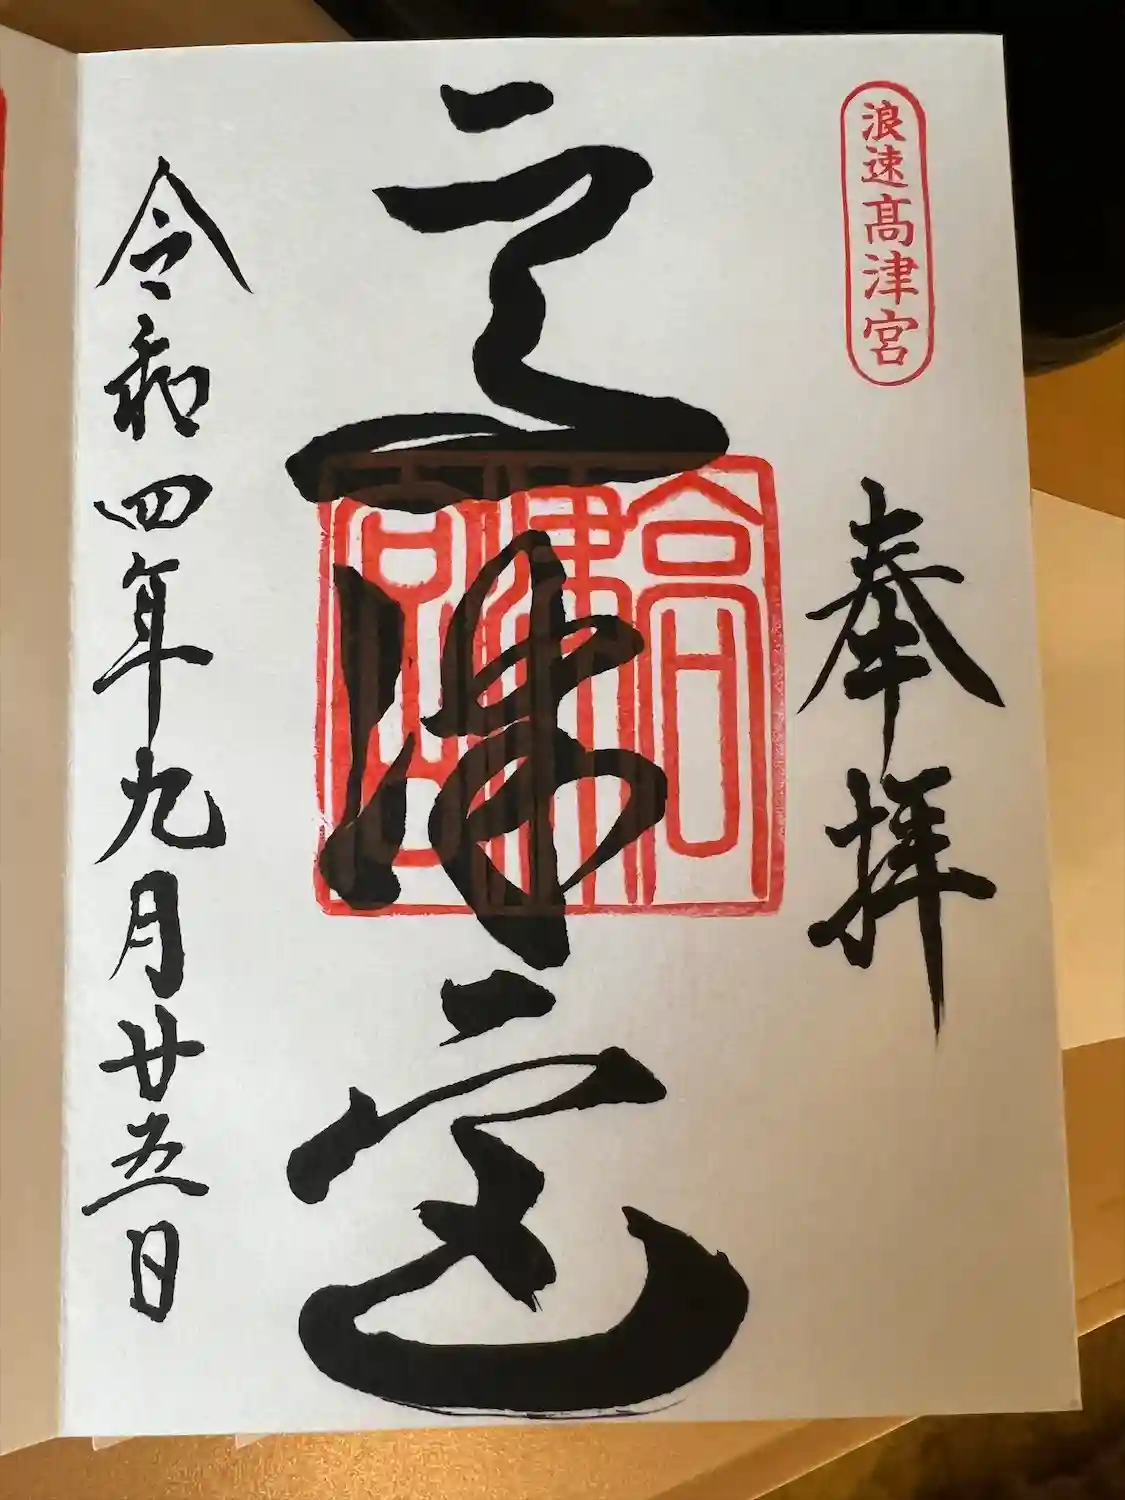 浪速髙津宮
奉拝
高津宮
高津宮
令和四年九月廿五日